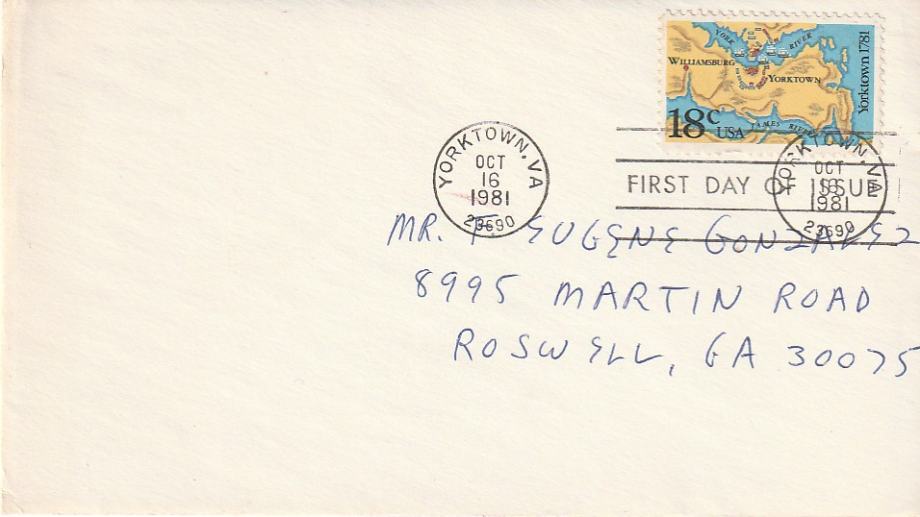 YORK RIVER
WILLIAMSBURG
YORKTOWN
Yorktown 1781
18c USA
JAMES RIVER
YORKTOWN, VA
OCT
16
1981
23690
YORKTOWN, VA
OCT
16
1981
23690
FIRST DAY OF ISSUE
MR. F EUGENE GONZALEZ
8995 MARTIN ROAD
ROSWELL, GA 30075